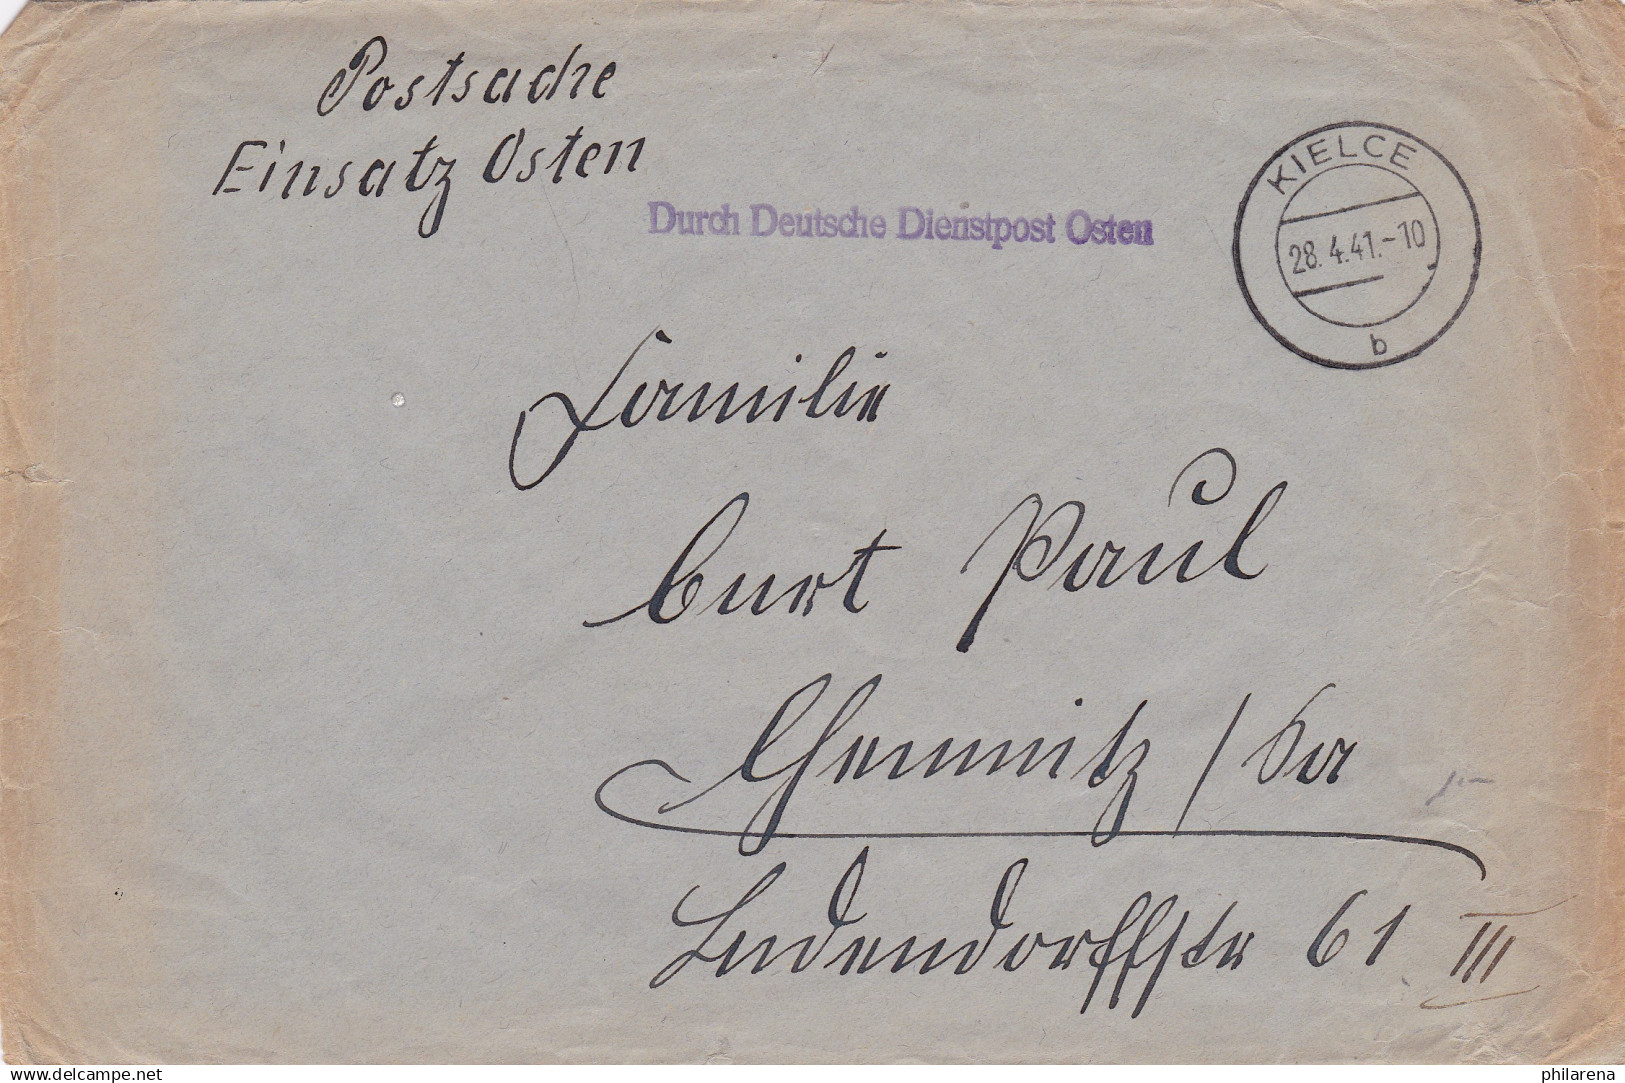 Postsache
Einsatz Osten
Durch Deutsche Dienstpost Osten
KIELCE
28.4.41.-10
b
Familie
Curt Paul
Chemnitz / Sa
Ludendorffstr 61 III
www.delcampe.net
philarena